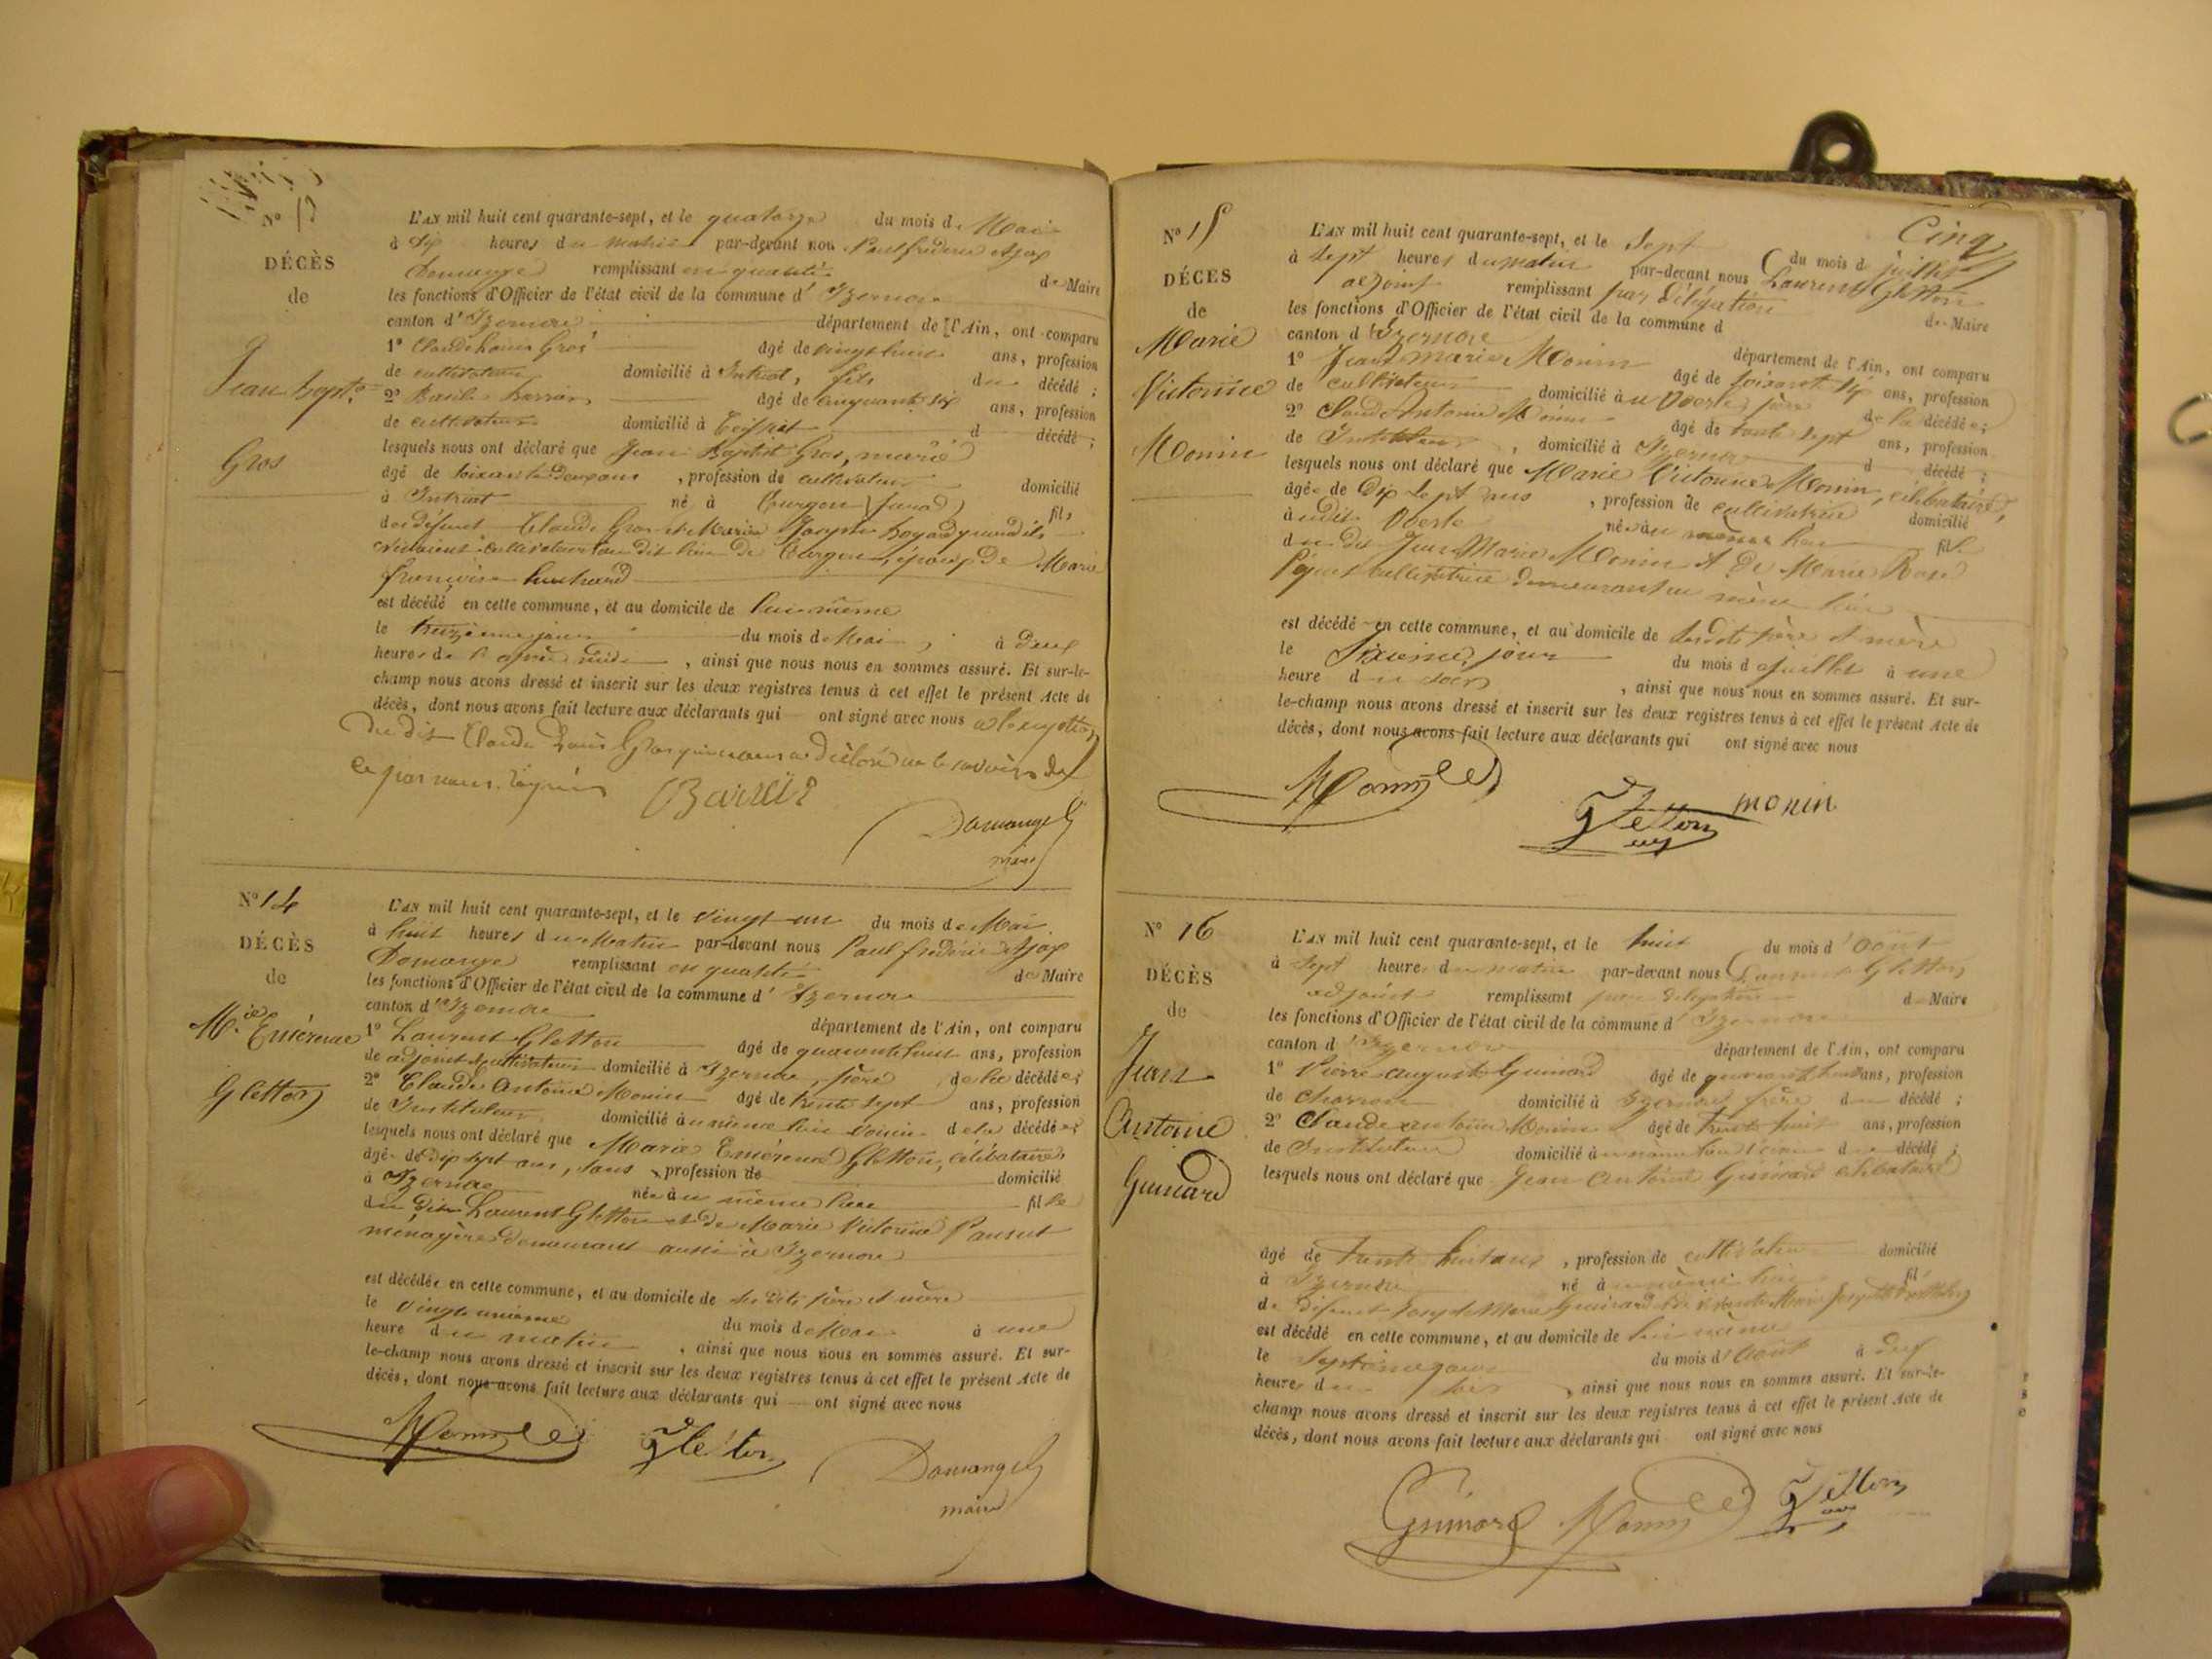 N° 13
DÉCÈS
de
Jean Bapte
Gros
L'AN mil huit cent quarante-sept, et le quatorze du mois de Mai
à six heures du matin par-devant nous Paul frédéric Ajax
Domange remplissant en qualité de Maire
les fonctions d'Officier de l'état civil de la commune d'Izernore
canton d'Izernore département de l'Ain, ont comparu
1° Claude Louis Gros âgé de vingt huit ans, profession
de cultivateur domicilié à Intriat, fils du décédé ;
2° Basile âgé de cinquante six ans, profession
de cultivateur domicilié à Ceissiat d décédé ;
lesquels nous ont déclaré que Jean Baptiste Gros, marié
âgé de soixante deux ans, profession de cultivateur domicilié
à Intriat né à (Jura) fils
de défunt Claude Gros et Marie Josephe quand ils
vivaient cultivateurs au dit lieu de époux de Marie
françoise
est décédé en cette commune, et au domicile de lui même
le treizième jour du mois de Mai, à deux
heures de l'après midi, ainsi que nous nous en sommes assuré. Et sur-le-
champ nous avons dressé et inscrit sur les deux registres tenus à cet effet le présent Acte de
décès, dont nous avons fait lecture aux déclarants qui ont signé avec nous à l'exception
du dit Claude Louis Gros qui nous a déclaré ne le savoir de
ce par nous requis
Domange
maire
N° 14
DÉCÈS
de
M.ie Emérence
Gletton
L'AN mil huit cent quarante-sept, et le vingt un du mois de Mai
à huit heures du Matin par-devant nous Paul frédéric Ajax
Domange remplissant en qualité de Maire
les fonctions d'Officier de l'état civil de la commune d'Izernore
canton d'Izernore département de l'Ain, ont comparu
1° Laurent Gletton âgé de quarante huit ans, profession
de adjoint & cultivateur domicilié à Izernore, père de la décédée ;
2° Claude Antoine Monin âgé de trente sept ans, profession
de Instituteur domicilié au même lieu voisin de la décédée ;
lesquels nous ont déclaré que Marie Emérence Gletton, célibataire,
âgée de dix sept ans, sans profession de domicilié
à Izernore née au même lieu fille
du dit Laurent Gletton et de Marie Victorine Pansut
ménagère demeurant aussi à Izernore
est décédée en cette commune, et au domicile de ses dits père et mère
le vingt unième du mois de Mai à une
heure du matin, ainsi que nous nous en sommes assuré. Et sur-
le-champ nous avons dressé et inscrit sur les deux registres tenus à cet effet le présent Acte de
décès, dont nous avons fait lecture aux déclarants qui ont signé avec nous
Monin Gletton Domange
maire
Cinq
N° 15
DÉCÈS
de
Marie
Victorine
Monin
L'AN mil huit cent quarante-sept, et le Sept du mois de juillet
à Sept heures du matin par-devant nous Laurent Gletton
adjoint remplissant par délégation de Maire
les fonctions d'Officier de l'état civil de la commune d
canton d'Izernore département de l'Ain, ont comparu
1° Jean Marie Monin âgé de soixante six ans, profession
de cultivateur domicilié à père de la décédée ;
2° Claude Antoine Monin âgé de trente sept ans, profession
de Instituteur, domicilié à Izernore d décédé ;
lesquels nous ont déclaré que Marie Victorine Monin, célibataire,
âgée de Dix Sept ans, profession de cultivatrice domicilié
à née au même lieu fille
du dit Jean Marie Monin et de Marie Rose
cultivatrice demeurant au même lieu
est décédé en cette commune, et au domicile de père et mère
le Sixième jour du mois de Juillet à une
heure du soir, ainsi que nous nous en sommes assuré. Et sur-
le-champ nous avons dressé et inscrit sur les deux registres tenus à cet effet le présent Acte de
décès, dont nous avons fait lecture aux déclarants qui ont signé avec nous
Monin Gletton monin
N° 16
DÉCÈS
de
Jean
Antoine
Guinard
L'AN mil huit cent quarante-sept, et le huit du mois d'Août
à Sept heures du matin par-devant nous Laurent Gletton
adjoint remplissant par délégation de Maire
les fonctions d'Officier de l'état civil de la commune d'Izernore
canton d'Izernore département de l'Ain, ont comparu
1° Pierre auguste Guinard âgé de ans, profession
de charron domicilié à Izernore frère du décédé ;
2° Claude antoine Monin âgé de trente huit ans, profession
de Instituteur domicilié au même lieu voisin du décédé ;
lesquels nous ont déclaré que Jean Antoine Guinard célibataire
âgé de trente huit ans, profession de cultivateur domicilié
à Izernore né au même lieu fils
de défunt Joseph Marie Guinard
est décédé en cette commune, et au domicile de lui même
le Septième jour du mois d'Août à dix
heures du soir, ainsi que nous nous en sommes assuré. Et sur-le-
champ nous avons dressé et inscrit sur les deux registres tenus à cet effet le présent Acte de
décès, dont nous avons fait lecture aux déclarants qui ont signé avec nous
Guinard Monin Gletton